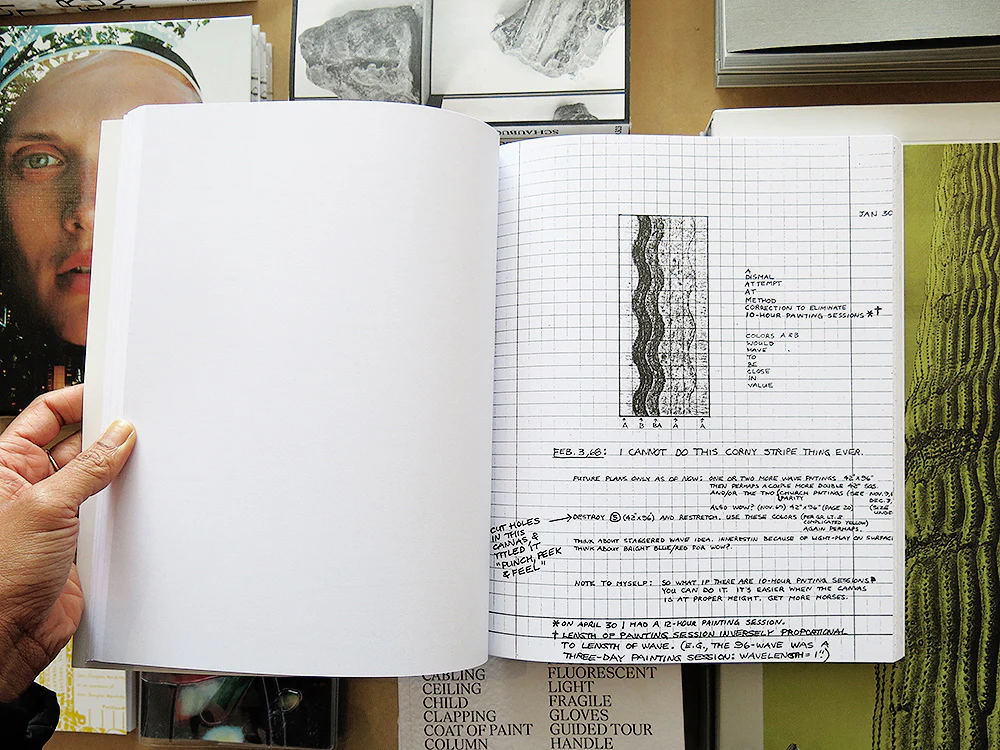 JAN 30
A
DISMAL
ATTEMPT
AT
METHOD
CORRECTION TO ELIMINATE
10-HOUR PAINTING SESSIONS *†
COLORS A & B
WOULD
HAVE
TO
BE
CLOSE
IN
VALUE
A B BA A A
FEB. 3, 68: I CANNOT DO THIS CORNY STRIPE THING EVER.
FUTURE PLANS ONLY AS OF NOW: ONE OR TWO MORE WAVE PNTINGS 42"X96"
THEN PERHAPS A COUPLE MORE DOUBLE 42" SQS.
AND/OR THE TWO CHURCH PNTINGS (SEE NOV. 9,
PARITY
DEC. 3,
ALSO WOW? (NOV. 67) 42"X96" (PAGE 20)
(SIZE
DESTROY (42"X96") AND RESTRETCH. USE THESE COLORS (PER GR. LT. &
COMPLICATED YELLOW)
AGAIN PERHAPS.
CUT HOLES
IN THIS
CANVAS, &
TITLED IT
"PUNCH, PEEK
& FEEL"
THINK ABOUT STAGGERED WAVE IDEA. INNERESTIN BECAUSE OF LIGHT-PLAY ON SURFAC
THINK ABOUT BRIGHT BLUE/RED FOR WOW?.
NOTE TO MYSELF: SO WHAT IF THERE ARE 10-HOUR PNTING SESSIONS?
YOU CAN DO IT. IT'S EASIER WHEN THE CANVAS
IS AT PROPER HEIGHT. GET MORE HORSES.
* ON APRIL 30 I HAD A 12-HOUR PAINTING SESSION.
† LENGTH OF PAINTING SESSION INVERSELY PROPORTIONAL
TO LENGTH OF WAVE. (E.G., THE 96-WAVE WAS A
THREE-DAY PAINTING SESSION: WAVELENGTH = 1")
CABLING
CEILING
CHILD
CLAPPING
COAT OF PAINT
COLUMN
FLUORESCENT
LIGHT
FRAGILE
GLOVES
GUIDED TOUR
HANDLE